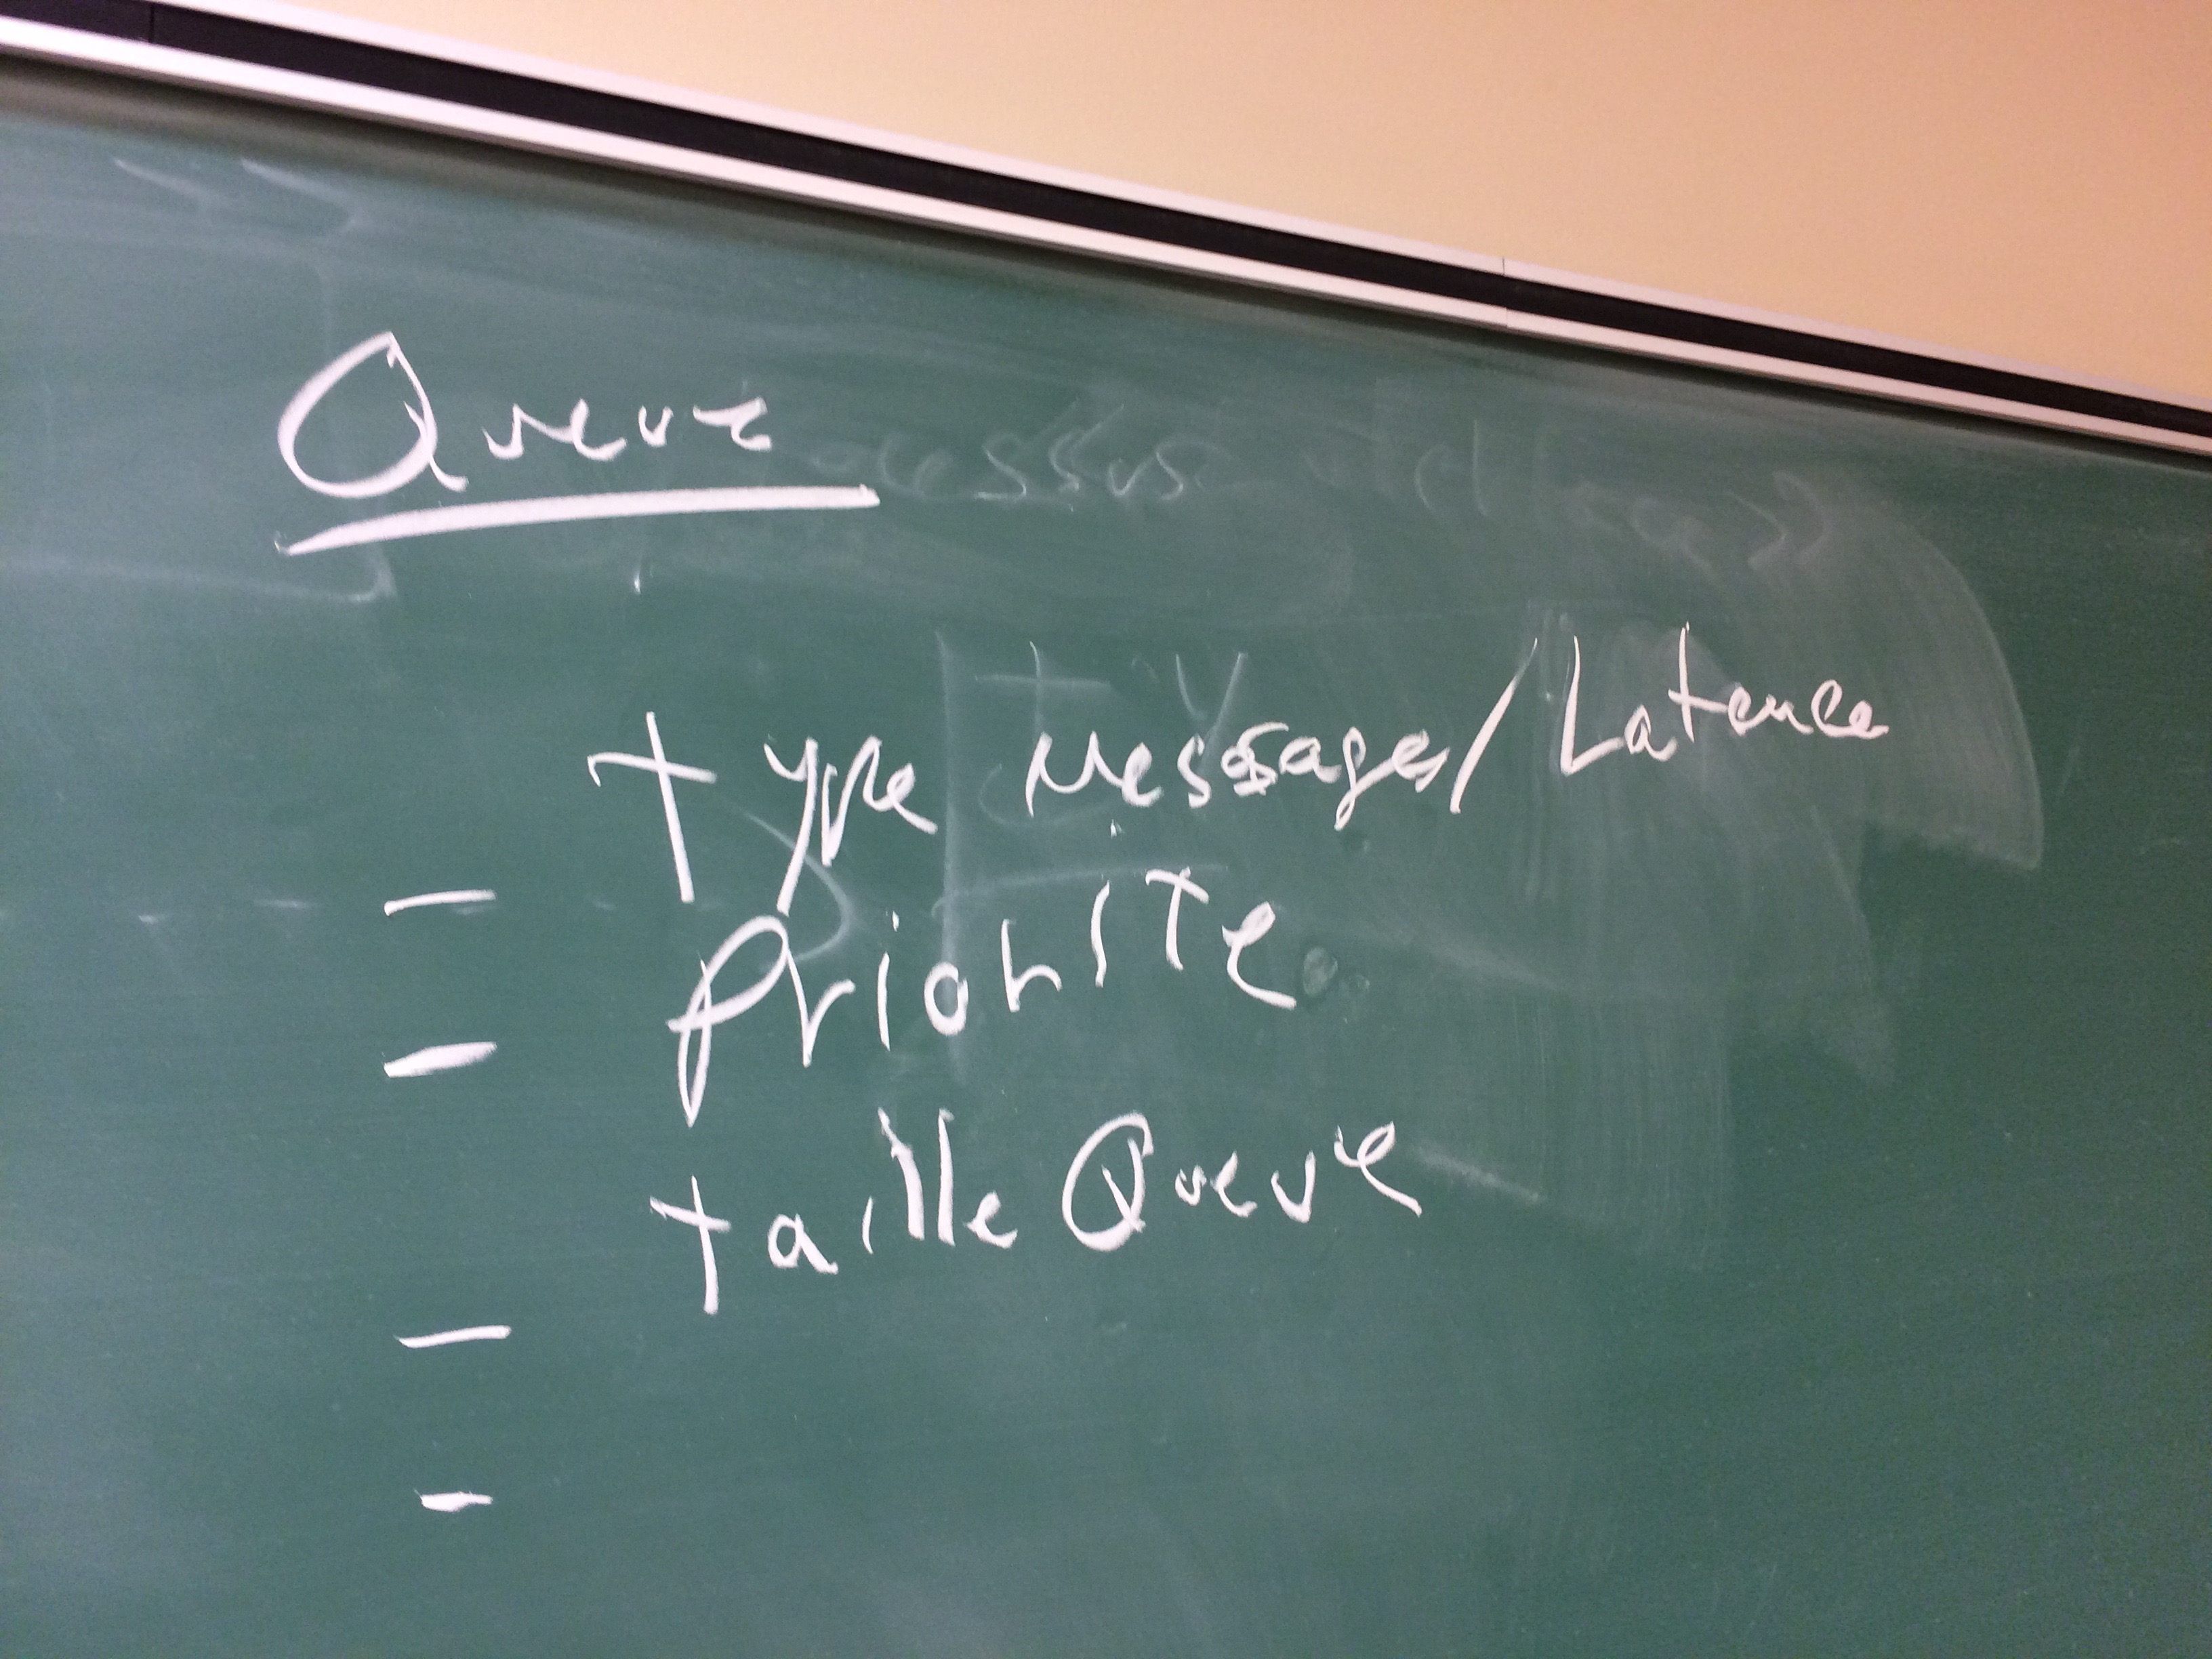 Queue
- type Messages/Latence
- Priorite
- taille Queue
-